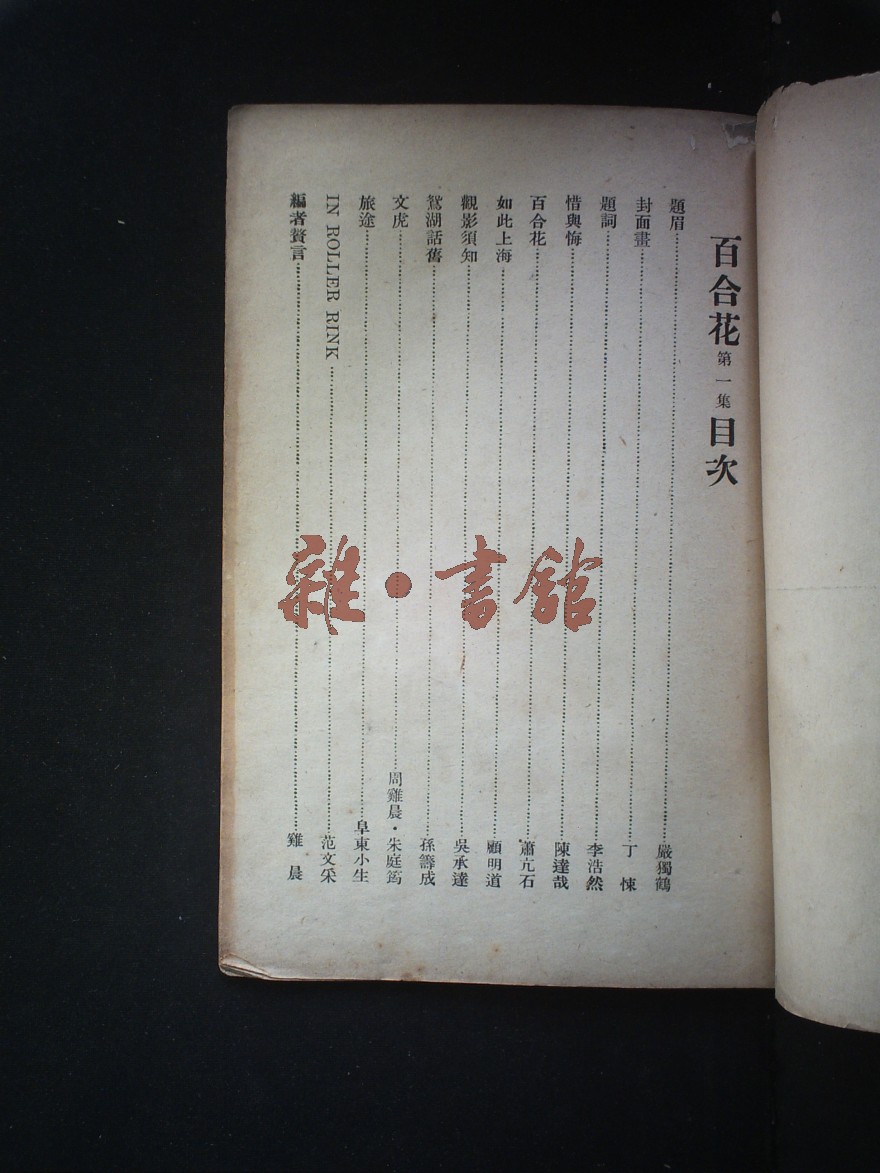 百合花第一集目次
題眉……嚴獨鶴
封面畫……丁悚
題詞……李浩然
惜與悔……陳達哉
百合花……蕭亢石
如此上海……顧明道
觀影須知……吳承達
鴛湖話舊……孫籌成
文虎……周雞晨・朱庭筠
旅途……阜東小生
IN ROLLER RINK……范文采
編者贅言……雞晨
雜・書館